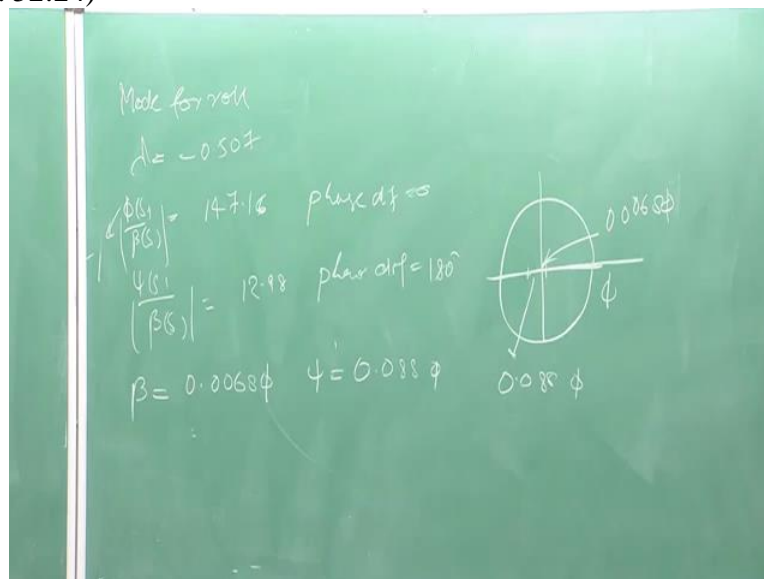 Mode for roll
λ = -0.507
|ϕ(s)/β(s)| = 147.16 phase df = 0
|ψ(s)/β(s)| = 12.98 phase diff = 180°
β = 0.0068ϕ ψ = 0.088 ϕ
0.0068ϕ
ϕ
0.088 ϕ